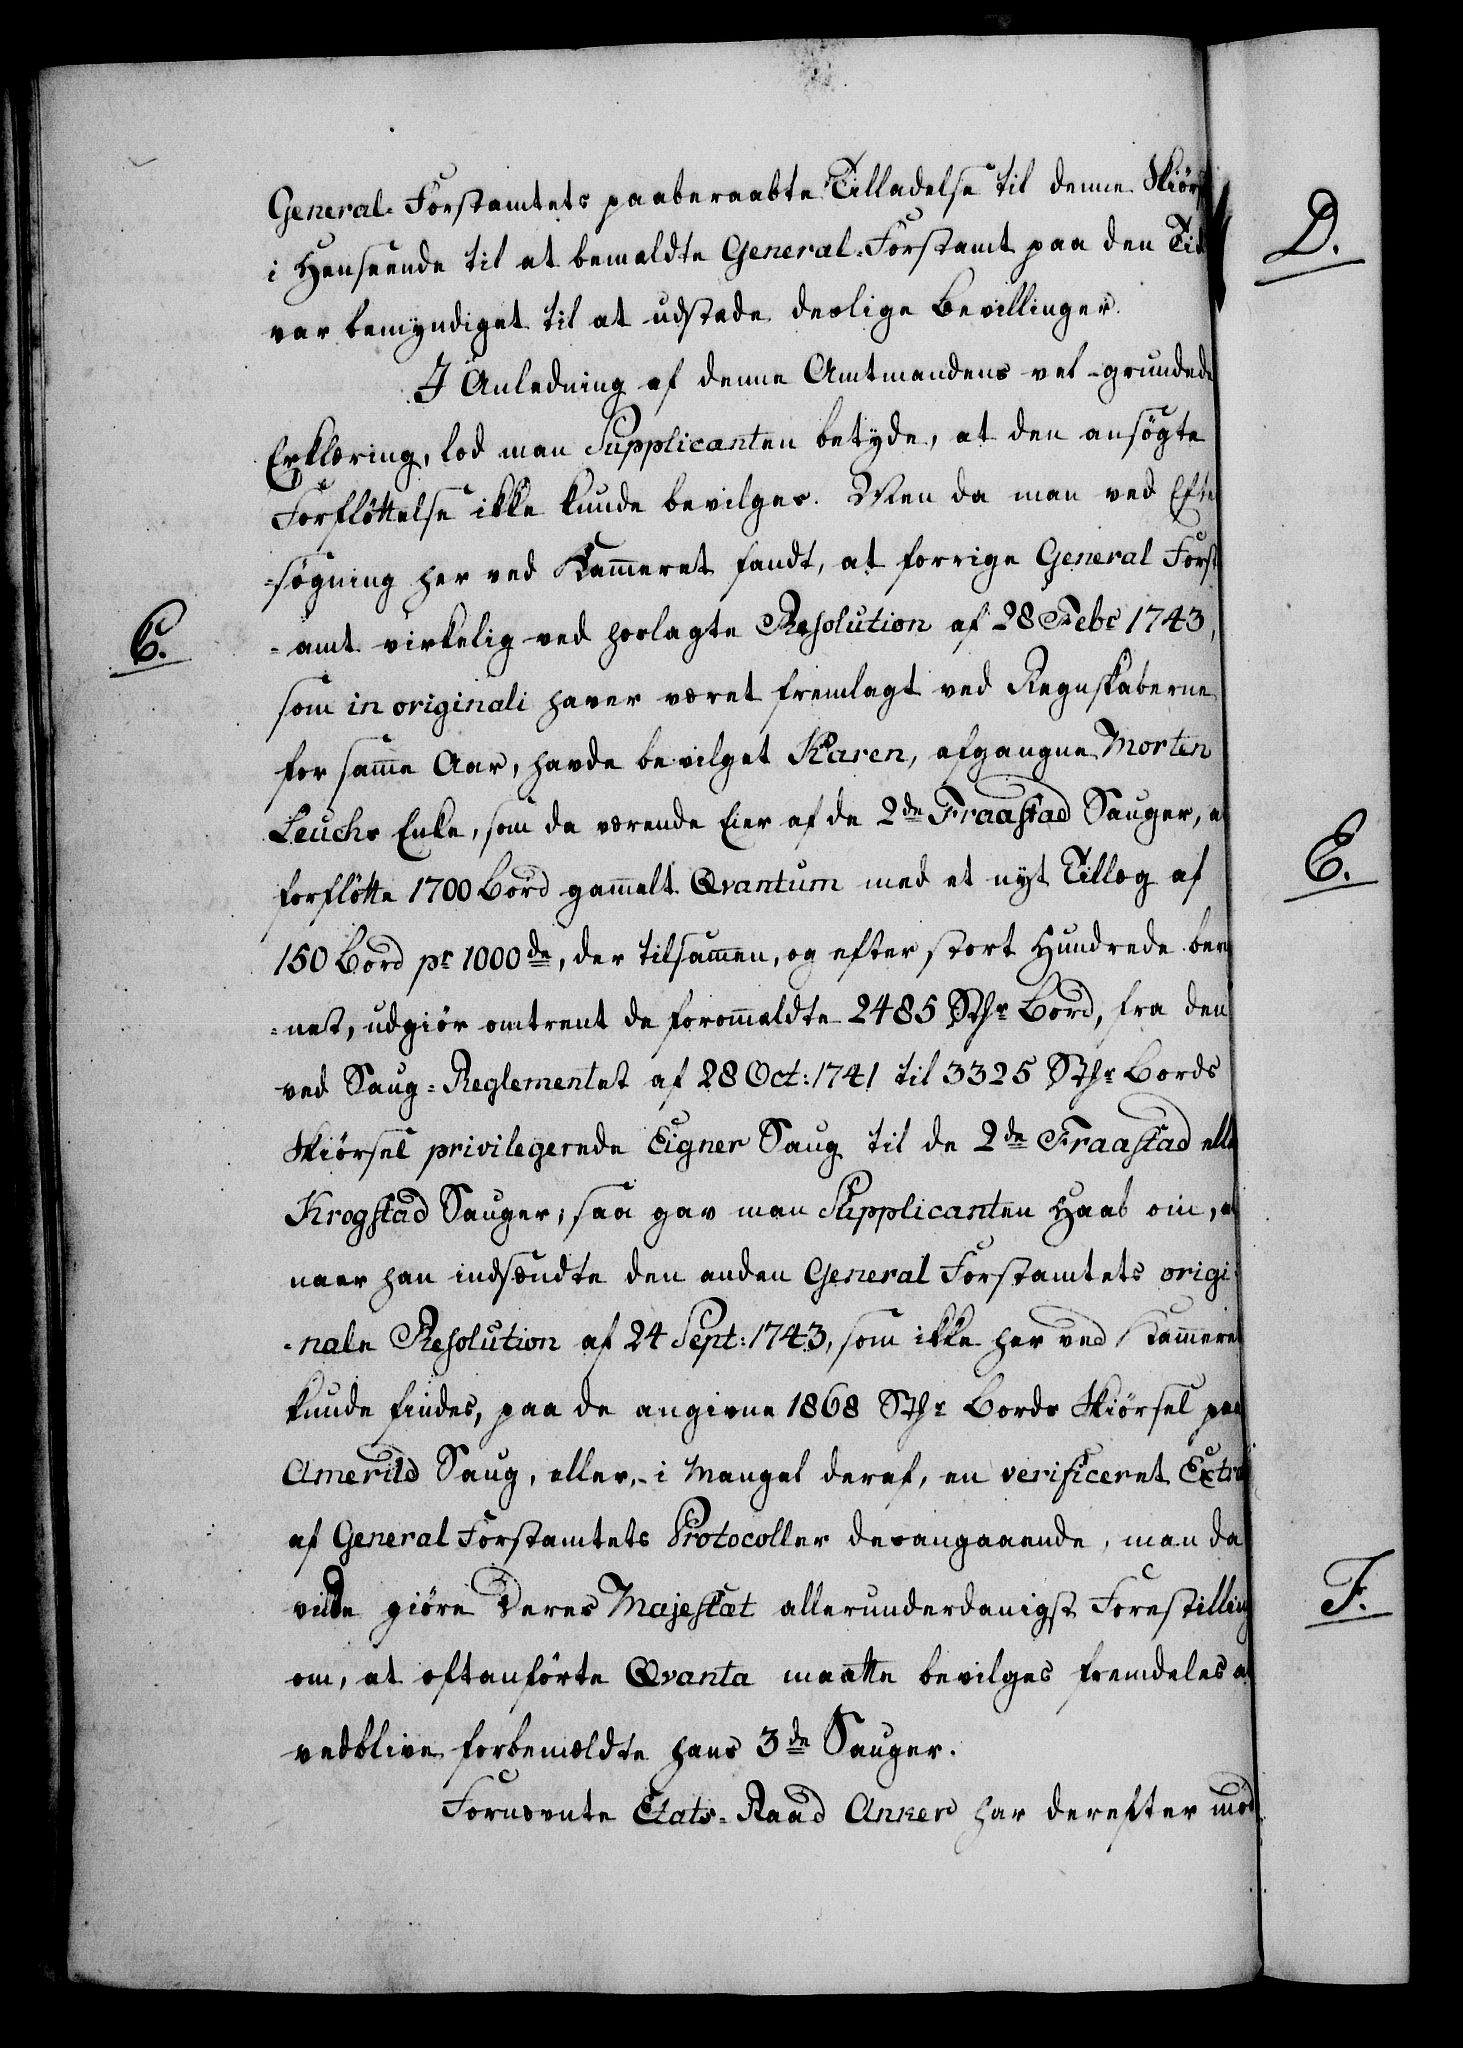 General-Forstamtets paaberaabte Tilladelse til denne Skiør
i Henseende til at bemeldte General-Forstamt paa den Tid
var bemyndiget til at udstede deslige Bevillinger.
I Anledning af denne Amtmandens vel-grundede
Erklæring, lod man Supplicanten betyde, at den ansøgte
Forfløttelse ikke kunde bevilges. Men da man ved Efter
-søgning her ved Kammeret fandt, at forrige General Forst
-amt virkelig ved hoslagte Resolution af 28 Febr 1743,
C.
som in originali haver været fremlagt ved Regnskaberne
for samme Aar, havde bevilget Karen, afgangne Morten
Leuchs Enke, som da værende Eier af de 2de Fraastad Sauger, at
forfløtte 1700 Bord gammelt Qvantum med et nyt Tillæg af
150 Bord pr 1000de, der tilsammen, og efter stort Hundrede bereg
-net, udgiør omtrent de forommeldte 2485 Sthr Bord, fra den
ved Saug-Reglementet af 28 Oct: 1741 til 3325 Sthr Bords
Skiørsel privilegerede Eigner Saug til de 2de Fraastad eller
Krogstad Sauger; saa gav man Supplicanten Haab om, at
naar han indsendte den anden General Forstamtets origi
-nale Resolution af 24 Sept: 1743, som ikke her ved Kammeret
kunde findes, paa de angivne 1868 Sthr Bords Skiørsel paa
Amerild Saug, eller, i Mangel deraf, en verificeret Extra
af General Forstamtets Protocoller desangaaende, man da
vilde giøre Deres Majestæt allerunderdanigst Forestilling
om, at oftanførte Qvanta maatte bevilges fremdeles at
vedblive forbemældte hans 3de Sauger.
Fornevnte Etats-Raad Anker har derefter mød
D.
E.
F.